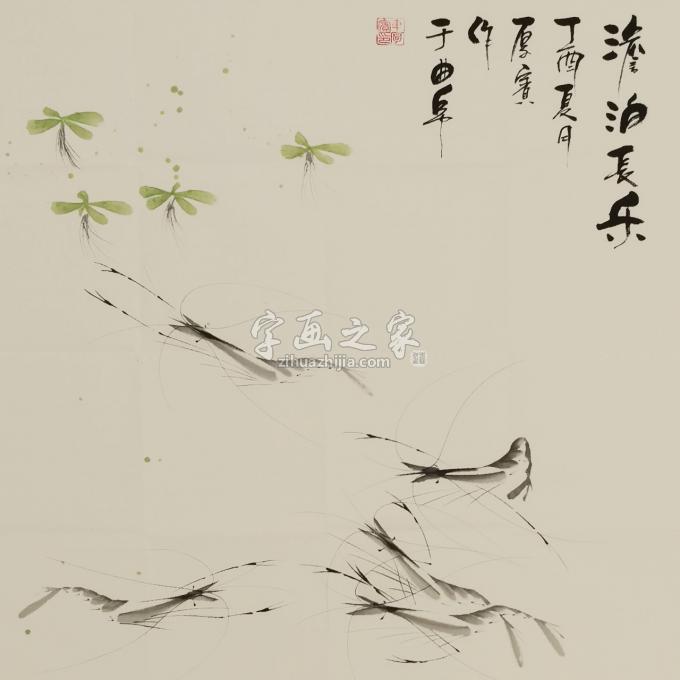 澹泊長乐
丁酉夏月
厚實
作
于曲阜
字画之家
zihuazhijia.com